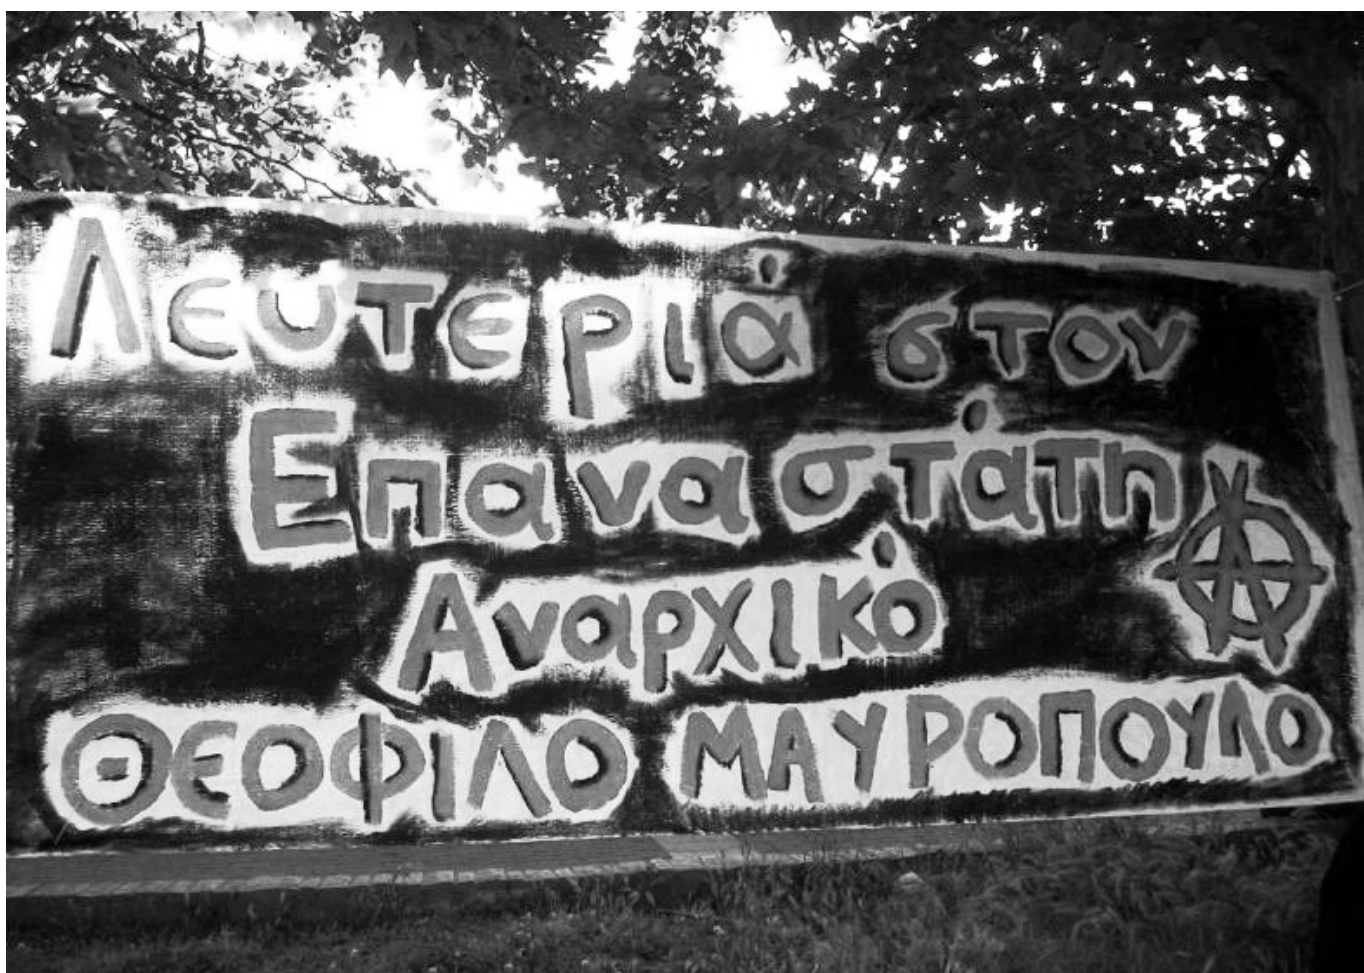 Λευτεριά στον
Επαναστάτη
Αναρχικό
ΘΕΟΦΙΛΟ ΜΑΥΡΟΠΟΥΛΟ